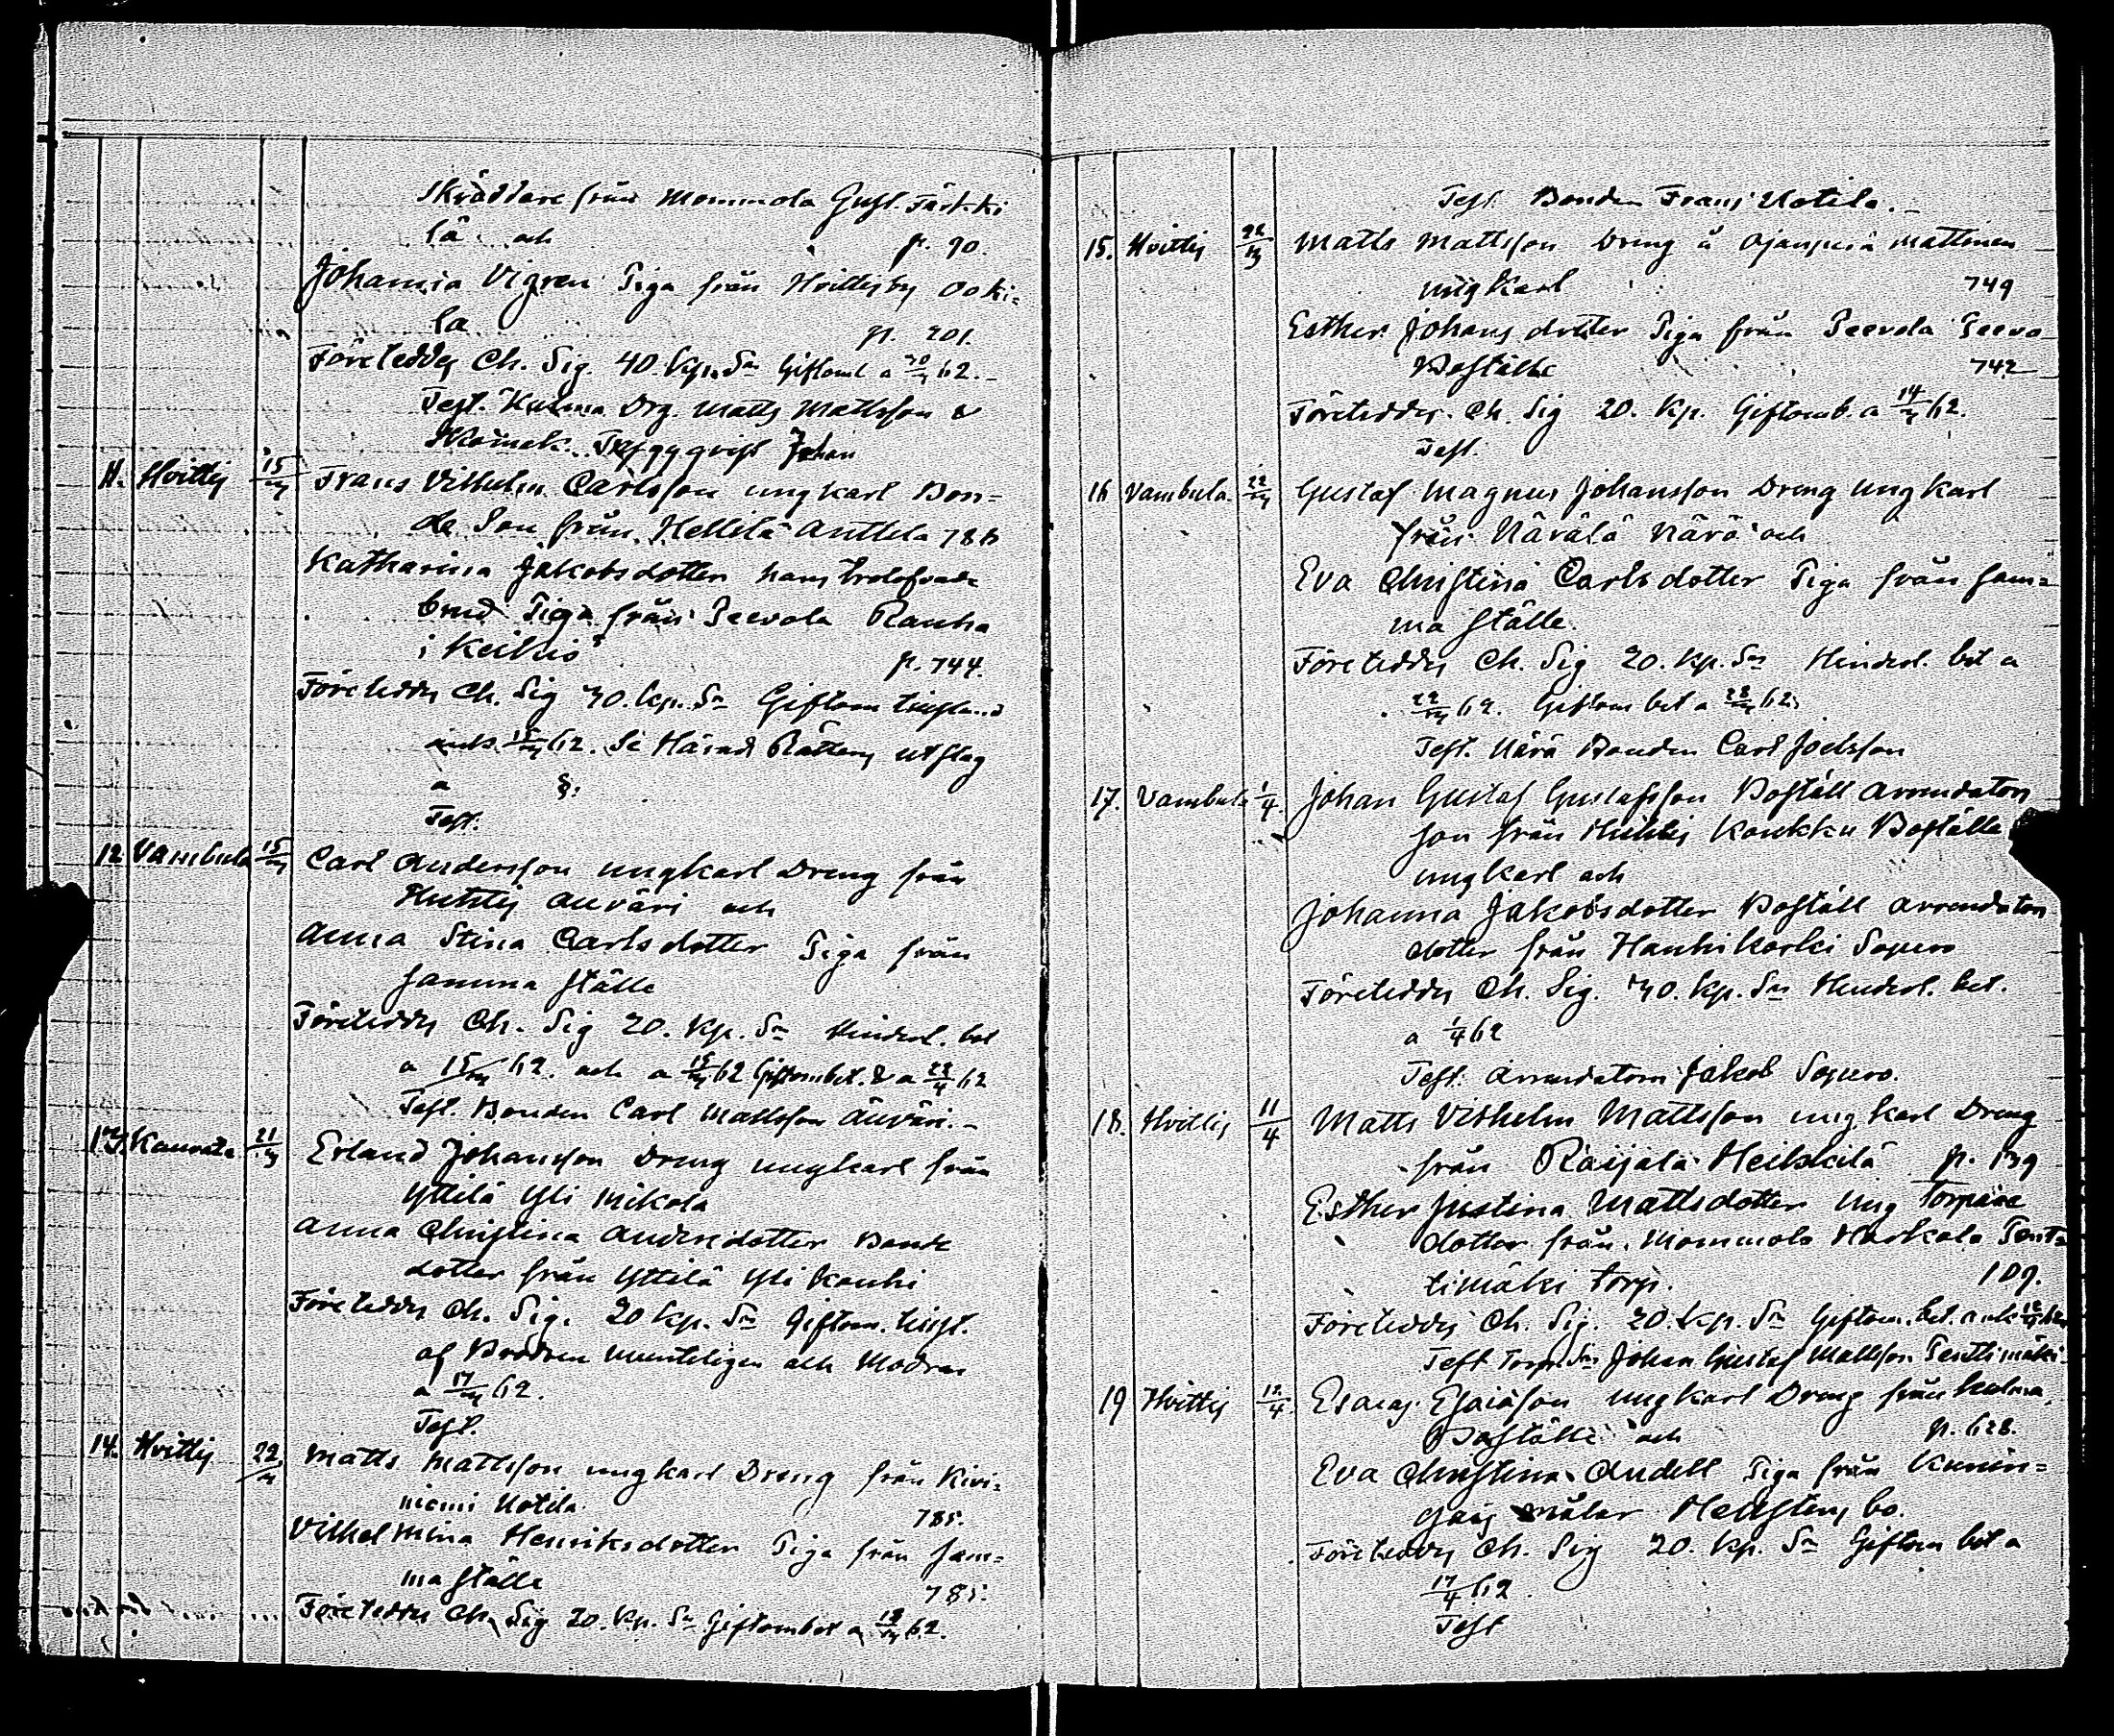 Skräddare från Mommola Gust. Tärkki
lä och p. 90.
Johanna Vigren Piga från Hvittisby Ooki=
la p. 201.
Företeddes Ch. Sig. 40. kp. Sr Giftomt a 62.
Test. Kulma Drg. Matts Mattsson &
Johan
11. Hvittis 15/3 Frans Vilhelm Carlsson ungkarl Bon=
de Son från Hellilä Anttila 788
Katharina Jakobsdotter hans trolofvade
brud Piga från Peevola Rauha
i Keikiö p. 744.
Företeddes Ch. Sig 30. kp. Sr Giftom
62. Se Härads Rättens utslag
a §.
Test.
12 Vambula 15/3 Carl Andersson ungkarl Dreng från
Huhtis Anväri och
Anna Stina Carlsdotter Piga från
samma ställe
Företeddes Ch. Sig 20. kp. Sr Hinderl. bet
a 15/3 62. och a 15/3 62 Giftombet. & a 22/4 62
Test. Bonden Carl Mattsson Anväri.-
13. Kauvatsa 21/3 Erland Johansson Dreng ungkarl från
Yttilä Yli Mikola
Anna Christina Andersdotter Bonde
dotter från Yttilä Yli Kauhi
Företeddes Ch. Sig. 20 kp. Sr Giftom.
af Brodren munteligen och Modren
a 17/3 62.
Test.
14. Hvittis 22/3 Matts Mattsson ungkarl Dreng från Kivi=
niemi Uotila 785.
Vilhelmina Henriksdotter Piga från sam=
ma ställe 785.
Företeddes Ch. Sig 20. kp. Sr Giftombet a 62.
Test. Bonden Frans Uotila.-
15. Hvittis 22/3 Matts Mattsson Dreng å Ojanperä Mattinen
ungkarl 749
Esther Johansdotter Piga från Peevola Peevo
Boställe 742
Företeddes Ch. Sig 20. kp. Giftomb. a 14/3 62.
Test.
16 Vambula 22/3 Gustaf Magnus Johansson Dreng ungkarl
från Närälä Närä och
Eva Christina Carlsdotter Piga från sam=
ma ställe.
Företeddes Ch. Sig 20. kp. Sr Hinderl. bet a
22/3 62. Giftom bet a 22/3 62.
Test. Närä Bonden Carl Joelsson
17. Vambula 1/4 Johan Gustaf Gustafsson Boställ arrendators
son från Huhtis Koukku Boställe
ungkarl och
Johanna Jakobsdotter Boställ arrendators
dotter från Hauhikorki Sopero
Företeddes Ch. Sig. 30. kp. Sr Hinderl. bet.
a 1/4 62
Test. Arrendatorn Jakob Sopero.
18. Hvittis 11/4 Matts Vilhelm Mattsson ungkarl Dreng
från Raijala Heikkilä p. 139
Esther Justina Mattsdotter ung Torpare
dotter från Mommola Markola Pent=
timäki torp. 109.
Företeddes Ch. Sig. 20. kp. Sr Giftom. bet.
Test Johan Gustaf Mattsson Penttimäki
19 Hvittis 12/4 Esaias Esaiasson ungkarl Dreng från Kulma
Boställe och p. 628.
Eva Christina Andell Piga från Kunin=
gais målar Hellstens bo.
Företeddes Ch. Sig 20. kp. Sr Giftom bet a
17/4 62
Test